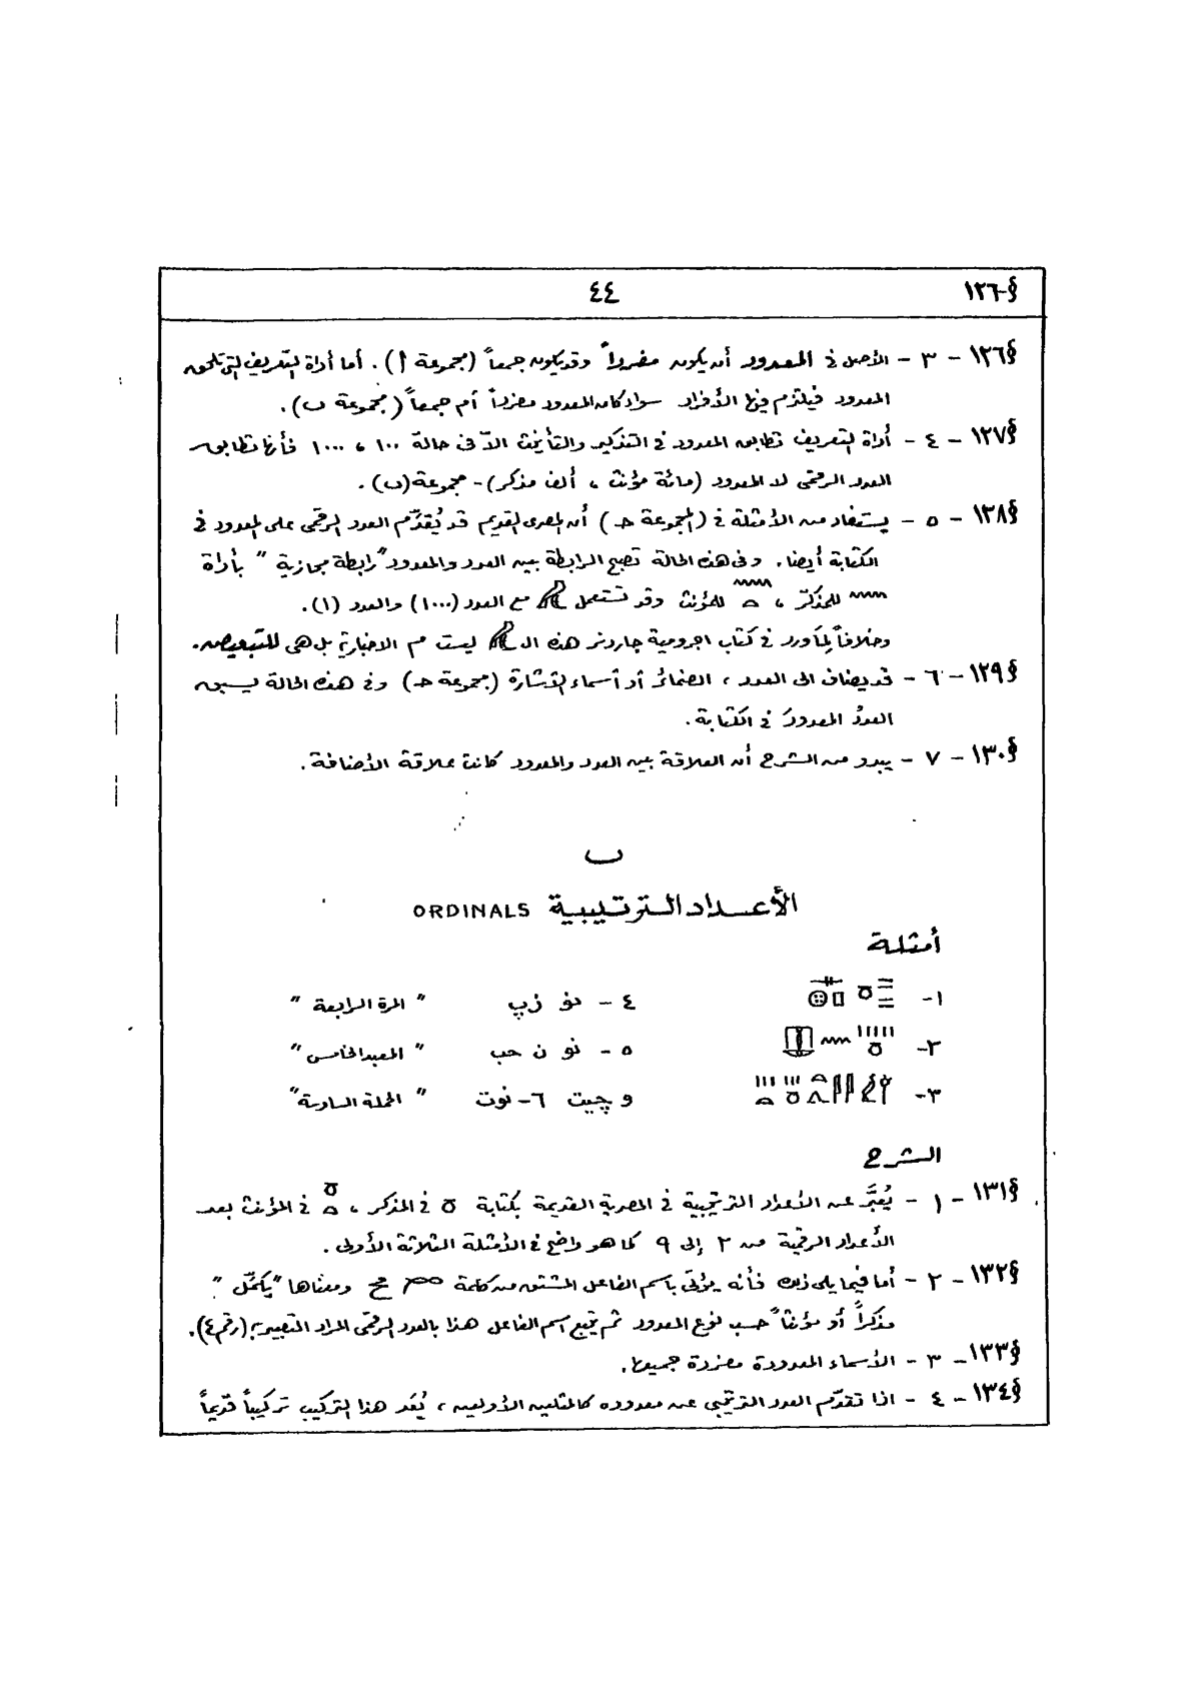 §١٢٦ ٤٤
§١٢٦ - ٣ - الأصل في المعدود أن يكون مفرداً وقد يكون جمعاً (مجموعة أ). أما أداة التعريف التي تلحق
المعدود فيلتزم فيها الأفراد سواء كان المعدود مفرداً أم جمعاً (مجموعة ب).
§١٢٧ - ٤ - أداة التعريف تطابق المعدود في التذكير والتأنيث الاّ في حالة ١٠٠ ، ١٠٠٠ فأنها تطابق
العدد الرقمى لا المعدود (مائة مؤنث ، ألف مذكر) - مجموعة (ب).
§١٢٨ - ٥ - يستفاد من الأمثلة في (المجموعة حـ) أن المصرى القديم قد يُقدِّم العدد الرقمى على المعدود في
الكتابة أيضا. وفى هذه الحالة تصبح الرابطة بين العدد والمعدود "رابطة مجازية" بأداة
𓈖 للمذكّر ، 𓈖𓏏 للمؤنث وقد تستعمل 𓅓 مع العدد (١٠٠٠) والعدد (١).
وخلافاً لِمَا ورد في كتاب اجرومية جاردنر هذه الـ 𓅓 ليست م الاخبارية بل هى للتبعيض.
§١٢٩ - ٦ - قد يضاف الى العدد ، الضمائر أو أسماء الأشارة (مجموعة حـ) وفى هذه الحالة يسبق
العددُ المعدودَ في الكتابة.
§١٣٠ - ٧ - يبدو من الشرح أن العلاقة بين العدد والمعدود كانت علاقة الأضافة.
ب
الأعداد الترتيبية ORDINALS
أمثلة
١- ٤ - نو زپ " المرة الرابعة "
٢- ٥ - نو ن حب " العيد الخامس "
٣- وچيت ٦ - نوت " الحملة السادسة "
الشرح
§١٣١ - ١ - يُعبَّر عن الأعداد الترتيبية في المصرية القديمة بكتابة 𓏌 في المذكر ، 𓏌𓏏 في المؤنث بعد
الأعداد الرقمية من ٢ إلى ٩ كما هو واضح في الأمثلة الثلاثة الأولى.
§١٣٢ - ٢ - أما فيما يلى ذلك فأنه يؤتى باسم الفاعل المشتق من كلمة مح ومعناها "يكمّل"
مذكراً أو مؤنثاً حسب نوع المعدود ثم يتبع اسم الفاعل هذا بالعدد الرقمى المراد التعبير به (رقم ٤).
§١٣٣ - ٣ - الأسماء المعدودة مفردة جميعها.
§١٣٤ - ٤ - اذا تقدّم العدد الترتيبي عن معدوده كالمثلين الأولين ، يُعَد هذا التركيب تركيباً قديماً